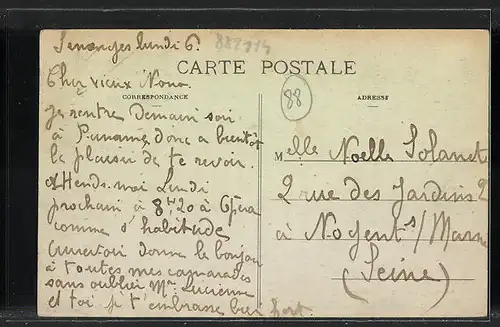 lundi 6.
882114
CARTE POSTALE
CORRESPONDANCE
ADRESSE
88
Cher vieux Nono.
je rentre Demain soir
à Paname donc a bientôt
le plaisir de te revoir.
Attends-moi Lundi
prochain à 8h20 à Opéra
comme d'habitude
aurevoir donne le bonjour
à toutes mes camarades
sans oublier Me Lucienne
et toi je t'embrasse bien fort.
Melle Noelle Solanet
2 rue des Jardins 2
à Nogent s/ Marne
(Seine)